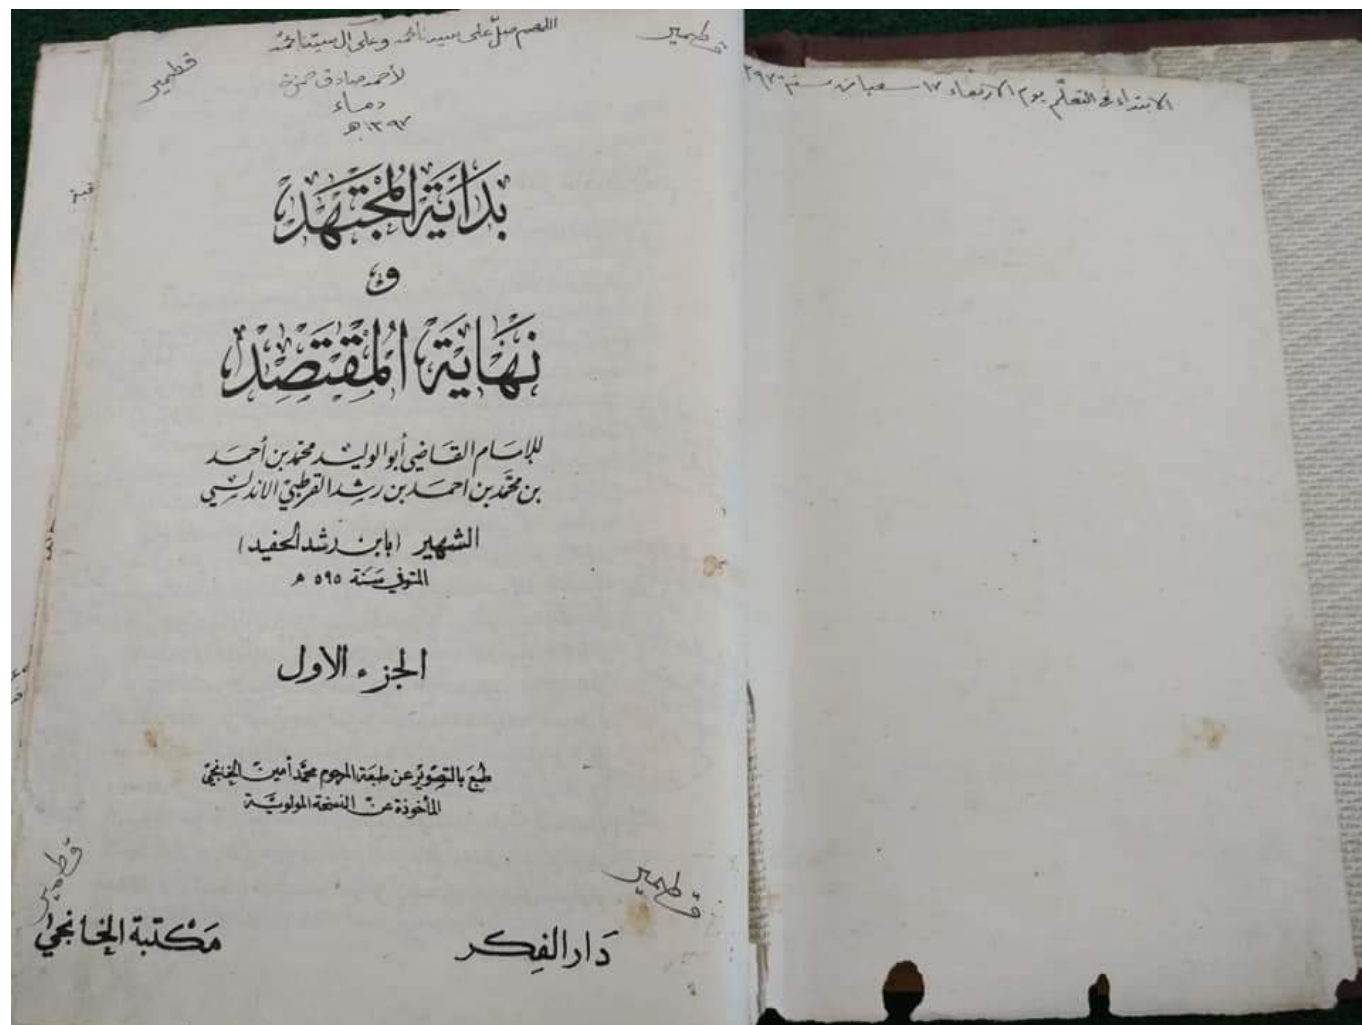 الابتداء في التعلّم يوم الاربعاء ١٧ شعبان سنة ١٣٩٧
قطمير
اللهم صلّ على سيدنا محمد وعلى آل سيدنا محمد
قطمير
لأحمد صادق
١٣٩٧ هـ
بدَايَة المُجْتَهَد
و
نهَايَة المُقْتَصِد
للإمَام القَاضِي أبو الوليد محمّد بن أحمَد
بن محمَّد بن احمَد بن رشد القرطبيّ الاندلسيّ
الشهير (بابن رشد الحفيد)
المتوفي سَنة ٥٩٥ ه
الجزء الاول
طبعَ بالتصوير عن طبعَة المرحوم محمَّد أمين الخانجي
المأخوذة عن النسخة المولويَّة
قطمير
قطمير
دَار الفِكر
مَكتبَة الخانجي